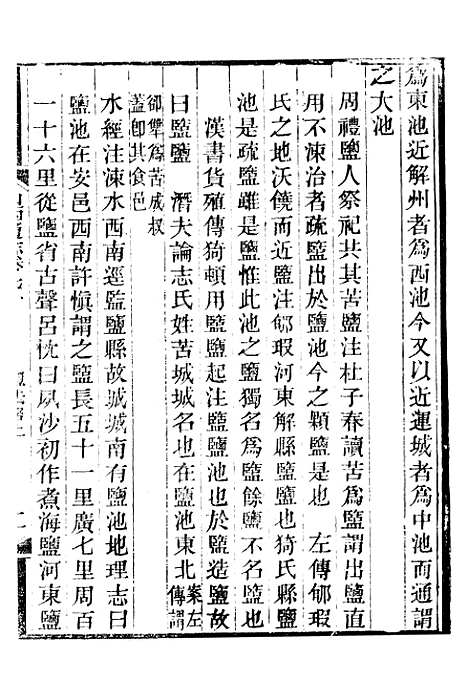 爲東池近解州者爲西池今又以近運城者爲中池而通謂
之大池
周禮鹽人祭祀共其苦鹽注杜子春讀苦爲鹽謂出鹽直
用不湅治者疏鹽出於鹽池今之顆鹽是也　左傳郇瑕
氏之地沃饒而近鹽注郇瑕河東解縣鹽也猗氏縣鹽
池是疏鹽雖是鹽惟此池之鹽獨名爲鹽餘鹽不名鹽也
漢書貨殖傳猗頓用鹽鹽起注鹽鹽池也於鹽造鹽故
曰鹽鹽　潛夫論志氏姓苦城城名也在鹽池東北案左傳謂
郤犨爲苦成叔
蓋卽其食邑
水經注涑水西南逕監鹽縣故城城南有鹽池地理志曰
鹽池在安邑西南許愼謂之鹽長五十一里廣七里周百
一十六里從鹽省古聲呂忱曰夙沙初作煮海鹽河東鹽